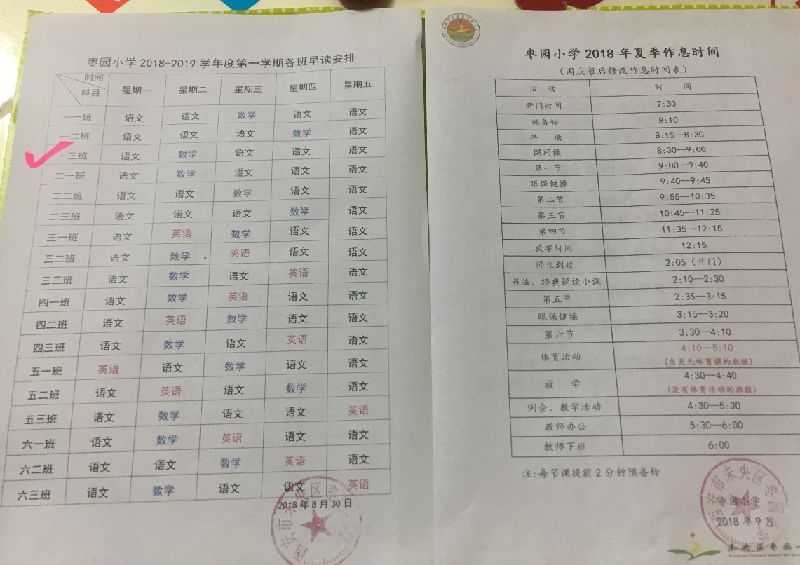 枣园小学 2018-2019 学年度第一学期各班早读安排
时间 科目 星期一 星期二 星期三 星期四 星期五
一一班 语文 语文 数学 语文 语文
一二班 语文 语文 语文 数学 语文
一三班 语文 数学 语文 语文 语文
二一班 语文 数学 语文 语文 语文
二二班 语文 语文 数学 语文 语文
二三班 语文 语文 语文 数学 语文
三一班 语文 英语 数学 语文 语文
三二班 语文 数学 英语 语文 语文
三三班 语文 数学 语文 英语 语文
四一班 语文 数学 英语 语文 语文
四二班 语文 英语 数学 语文 语文
四三班 语文 语文 数学 英语 语文
五一班 英语 语文 数学 语文 语文
五二班 语文 英语 语文 数学 语文
五三班 语文 数学 语文 语文 英语
六一班 语文 数学 英语 语文 语文
六二班 语文 语文 数学 英语 语文
六三班 语文 数学 语文 语文 英语
2018年8月30日
枣园小学 2018 年夏季作息时间
活 动 时 间
开门时间 7:30
预备铃 8:10
早 读 8:15—8:30
8:30—9:00
第一节 9:00—9:40
眼保健操 9:40—9:45
第二节 9:55—10:35
第三节 10:45—11:25
第四节 11:35—12:15
放学时间 12:15
师生到校 2:05（开门）
2:10—2:30
第五节 2:35—3:15
眼保健操 3:15—3:20
第六节 3:30—4:10
体育活动 4:10—5:10
放 学 4:30—4:40
（没有体育活动的班级）
例会、教学活动 4:30—5:30
教师办公 5:30—6:00
教师下班 6:00
注:每节课提前2分钟预备铃
枣园小学
2018年9月